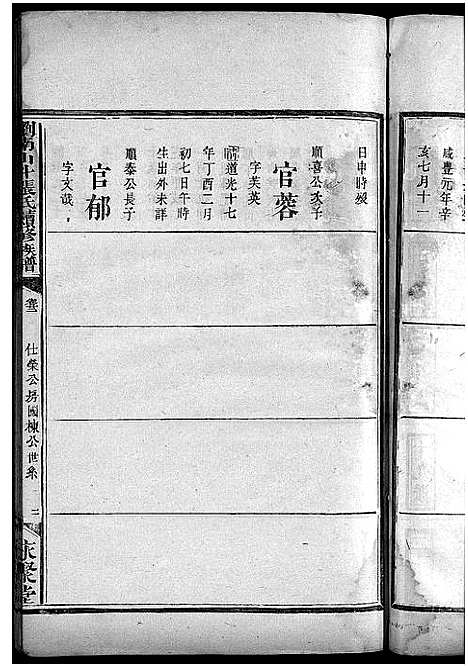 咸豐元年辛
亥七月十一
日申時歿
官蓉
順喜公次子
字芙英
道光十七
年丁酉二月
初七日午時
生出外未詳
官郁
順泰公長子
字文哉
張氏續修族譜
卷
仕榮公房國棟公世系